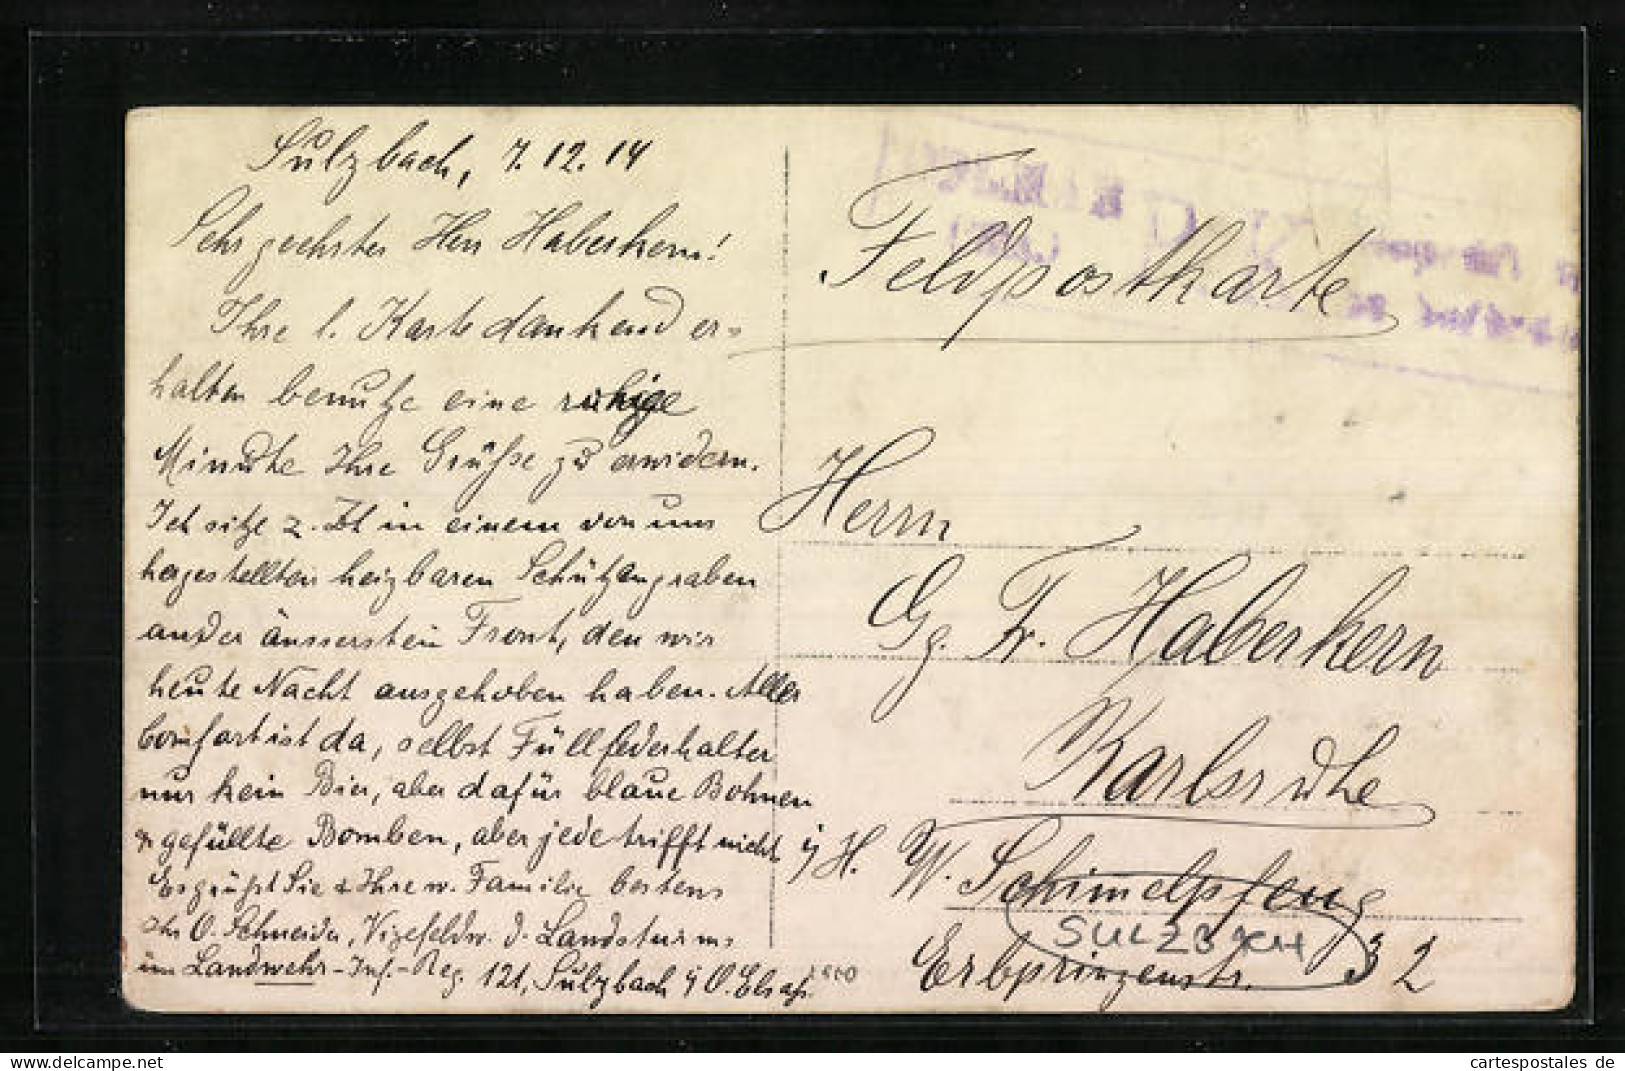 Sulzbach, 7.12.14
Sehr geehrter Herr Haberkern!
Ihre l. Karte dankend er=
halten benutze eine ruhige
Minute Ihre Grüsse zu erwidern.
Ich sitze z. Zt in einem von uns
hergestellten heizbaren Schützengraben
an der äussersten Front, den wir
heute Nacht ausgehoben haben. Aller
Comfort ist da, selbst Füllfederhalter
nur kein Bier, aber dafür blaue Bohnen
& gefüllte Bomben, aber jede trifft nicht.
Es grüßt Sie & Ihre w. Familie bestens
Ihr O. Schneider, Vizefeldw. d. Landsturms
im Landwehr-Inf.-Reg. 121, Sulzbach i/ O. Elsaß.
Feldpostkarte
Herrn
Gg. Fr. Haberkern
Karlsruhe
i/H. W. Schimelpfeng
Erbprinzenstr. 32
SULZBACH
cartespostales de